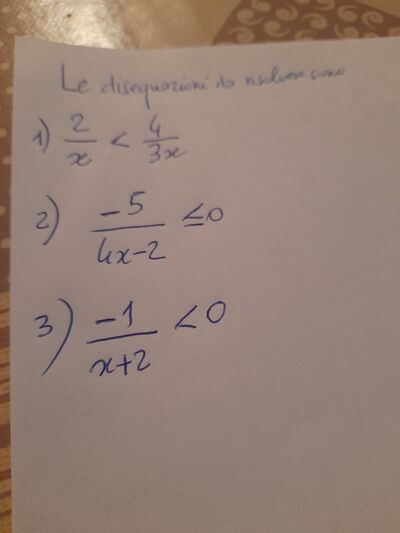 Le disequazioni da risolvere sono
1) 2/x < 4/3x
2) -5/4x-2 ≤0
3) -1/x+2 <0